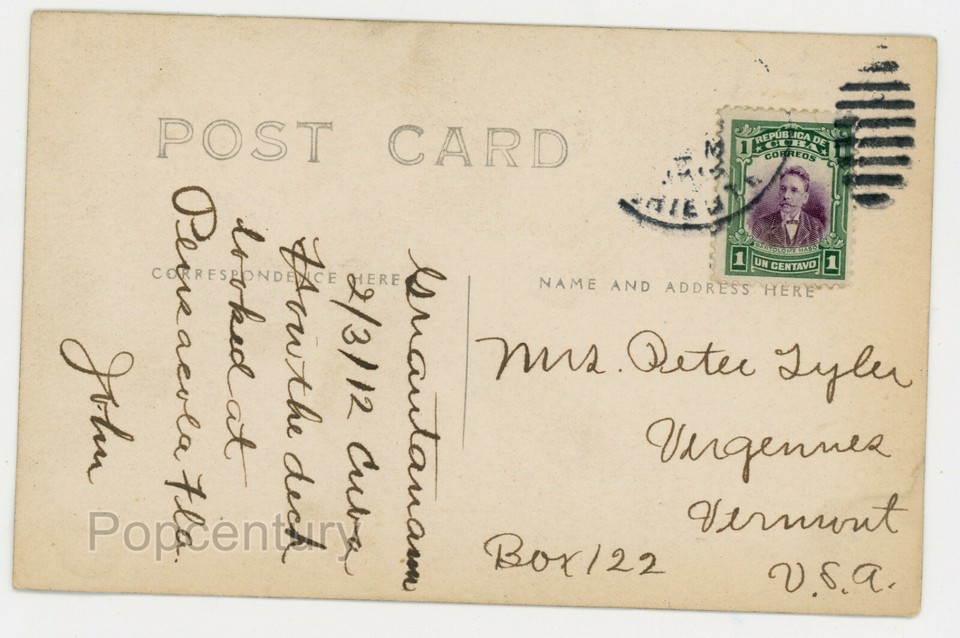 POST CARD
CORRESPONDENCE HERE
NAME AND ADDRESS HERE
1 REPÚBLICA DE 1
CUBA
CORREOS
BARTOLOME MASO
1 UN CENTAVO 1
Guantanamo
2/3/12 Cuba
How the deck
looked at
Pensacola Fla.
John
Mrs. Peter Tyler
Vergennes
Vermont
Box 122
U.S.A.
Popcentury